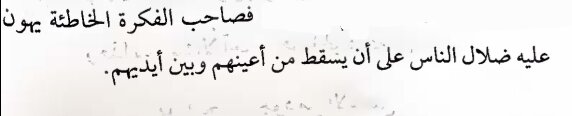 فصاحب الفكرة الخاطئة يهون
عليه ضلال الناس على أن يسقط من أعينهم وبين أيديهم.